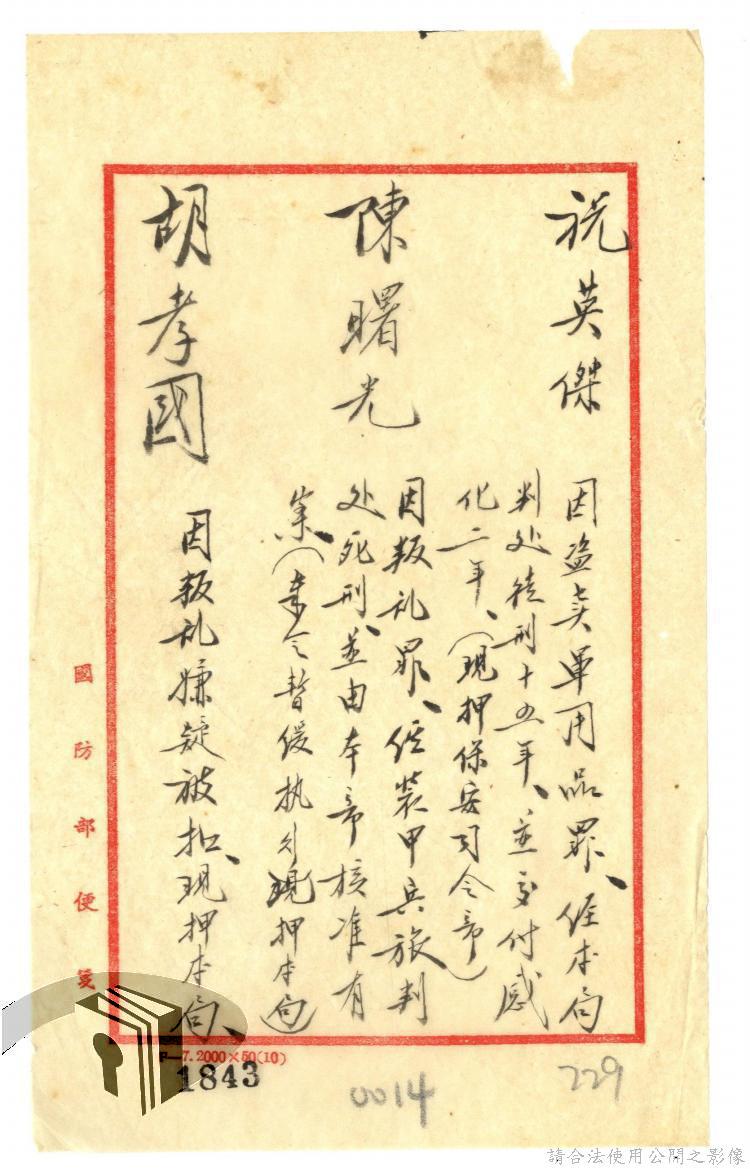 祝英傑
因盜卖軍用品罪、經本局
判处徒刑十五年、並交付感
化二年、（現押保安司令部）
陳曙光
因叛乱罪、經裝甲兵旅判
处死刑、並由本部核准有
案、（奉令暫缓执行現押本局）
胡孝國
因叛乱嫌疑被扣、現押本局、
國防部便箋
F—7.2000×50(10)
1843
0014
229
請合法使用公開之影像